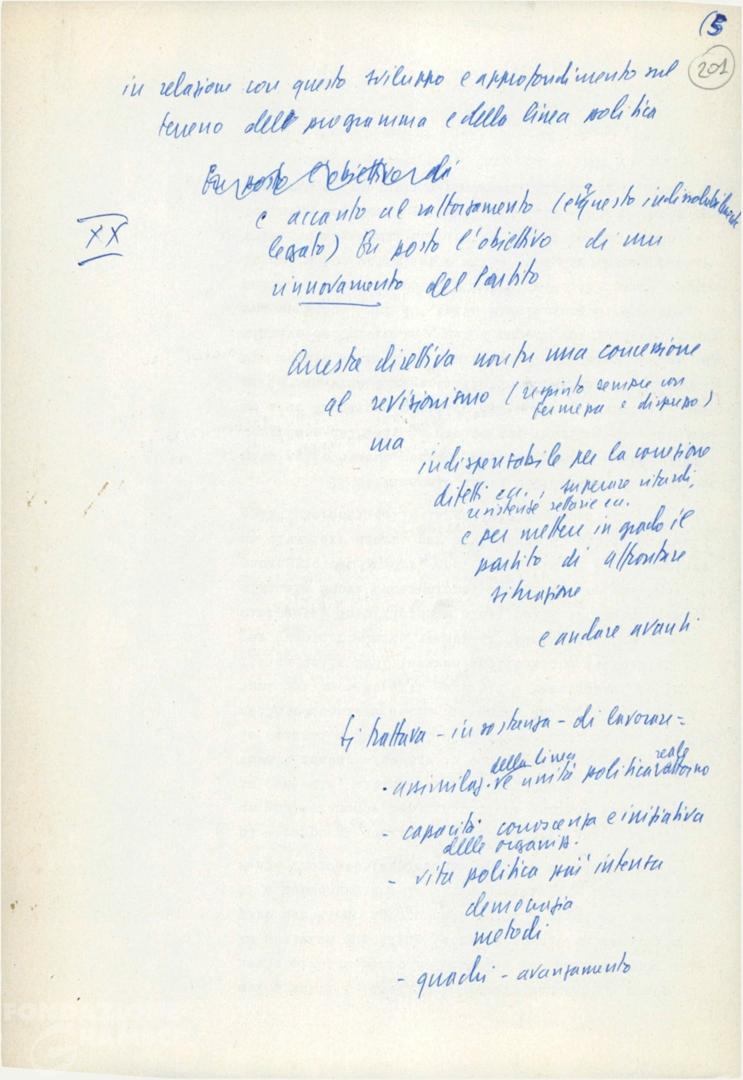 (5
201
in relazione con questo sviluppo e approfondimento sul
terreno del programma e della linea politica
Fu posto l'obiettivo di
XX
e accanto al rafforzamento (e a questo indissolubilmente
legato) fu posto l'obiettivo di un
rinnovamento del Partito
Questa direttiva non fu una concessione
al revisionismo (respinto sempre con
fermezza e disprezzo)
ma
indispensabile per la correzione
difetti ecc., superare ritardi,
resistenze settarie ecc.
e per mettere in grado il
partito di affrontare
situazione
e andare avanti
Si trattava - in sostanza - di lavorare =
della linea reale
· assimilaz. e unità politica attorno
- capacità conoscenza e iniziativa
delle organizz.
- vita politica più intensa
democrazia
metodi
- quadri - avanzamento
FONDAZIONE
GRAMSCI